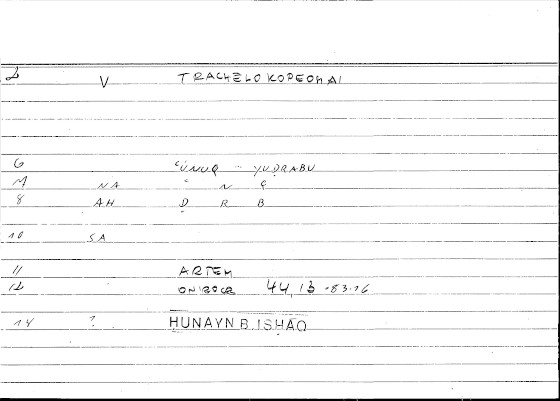 2 V TRACHELOKOPEOMAI
6 ʿUNUQ - YUḌRABU
M NA ʿ N Q
8 AH Ḍ R B
10 SA
11 ARTEM
12 ONIROCR 44,13 -83.16
14 ? ḤUNAYN B. ISḤAQ